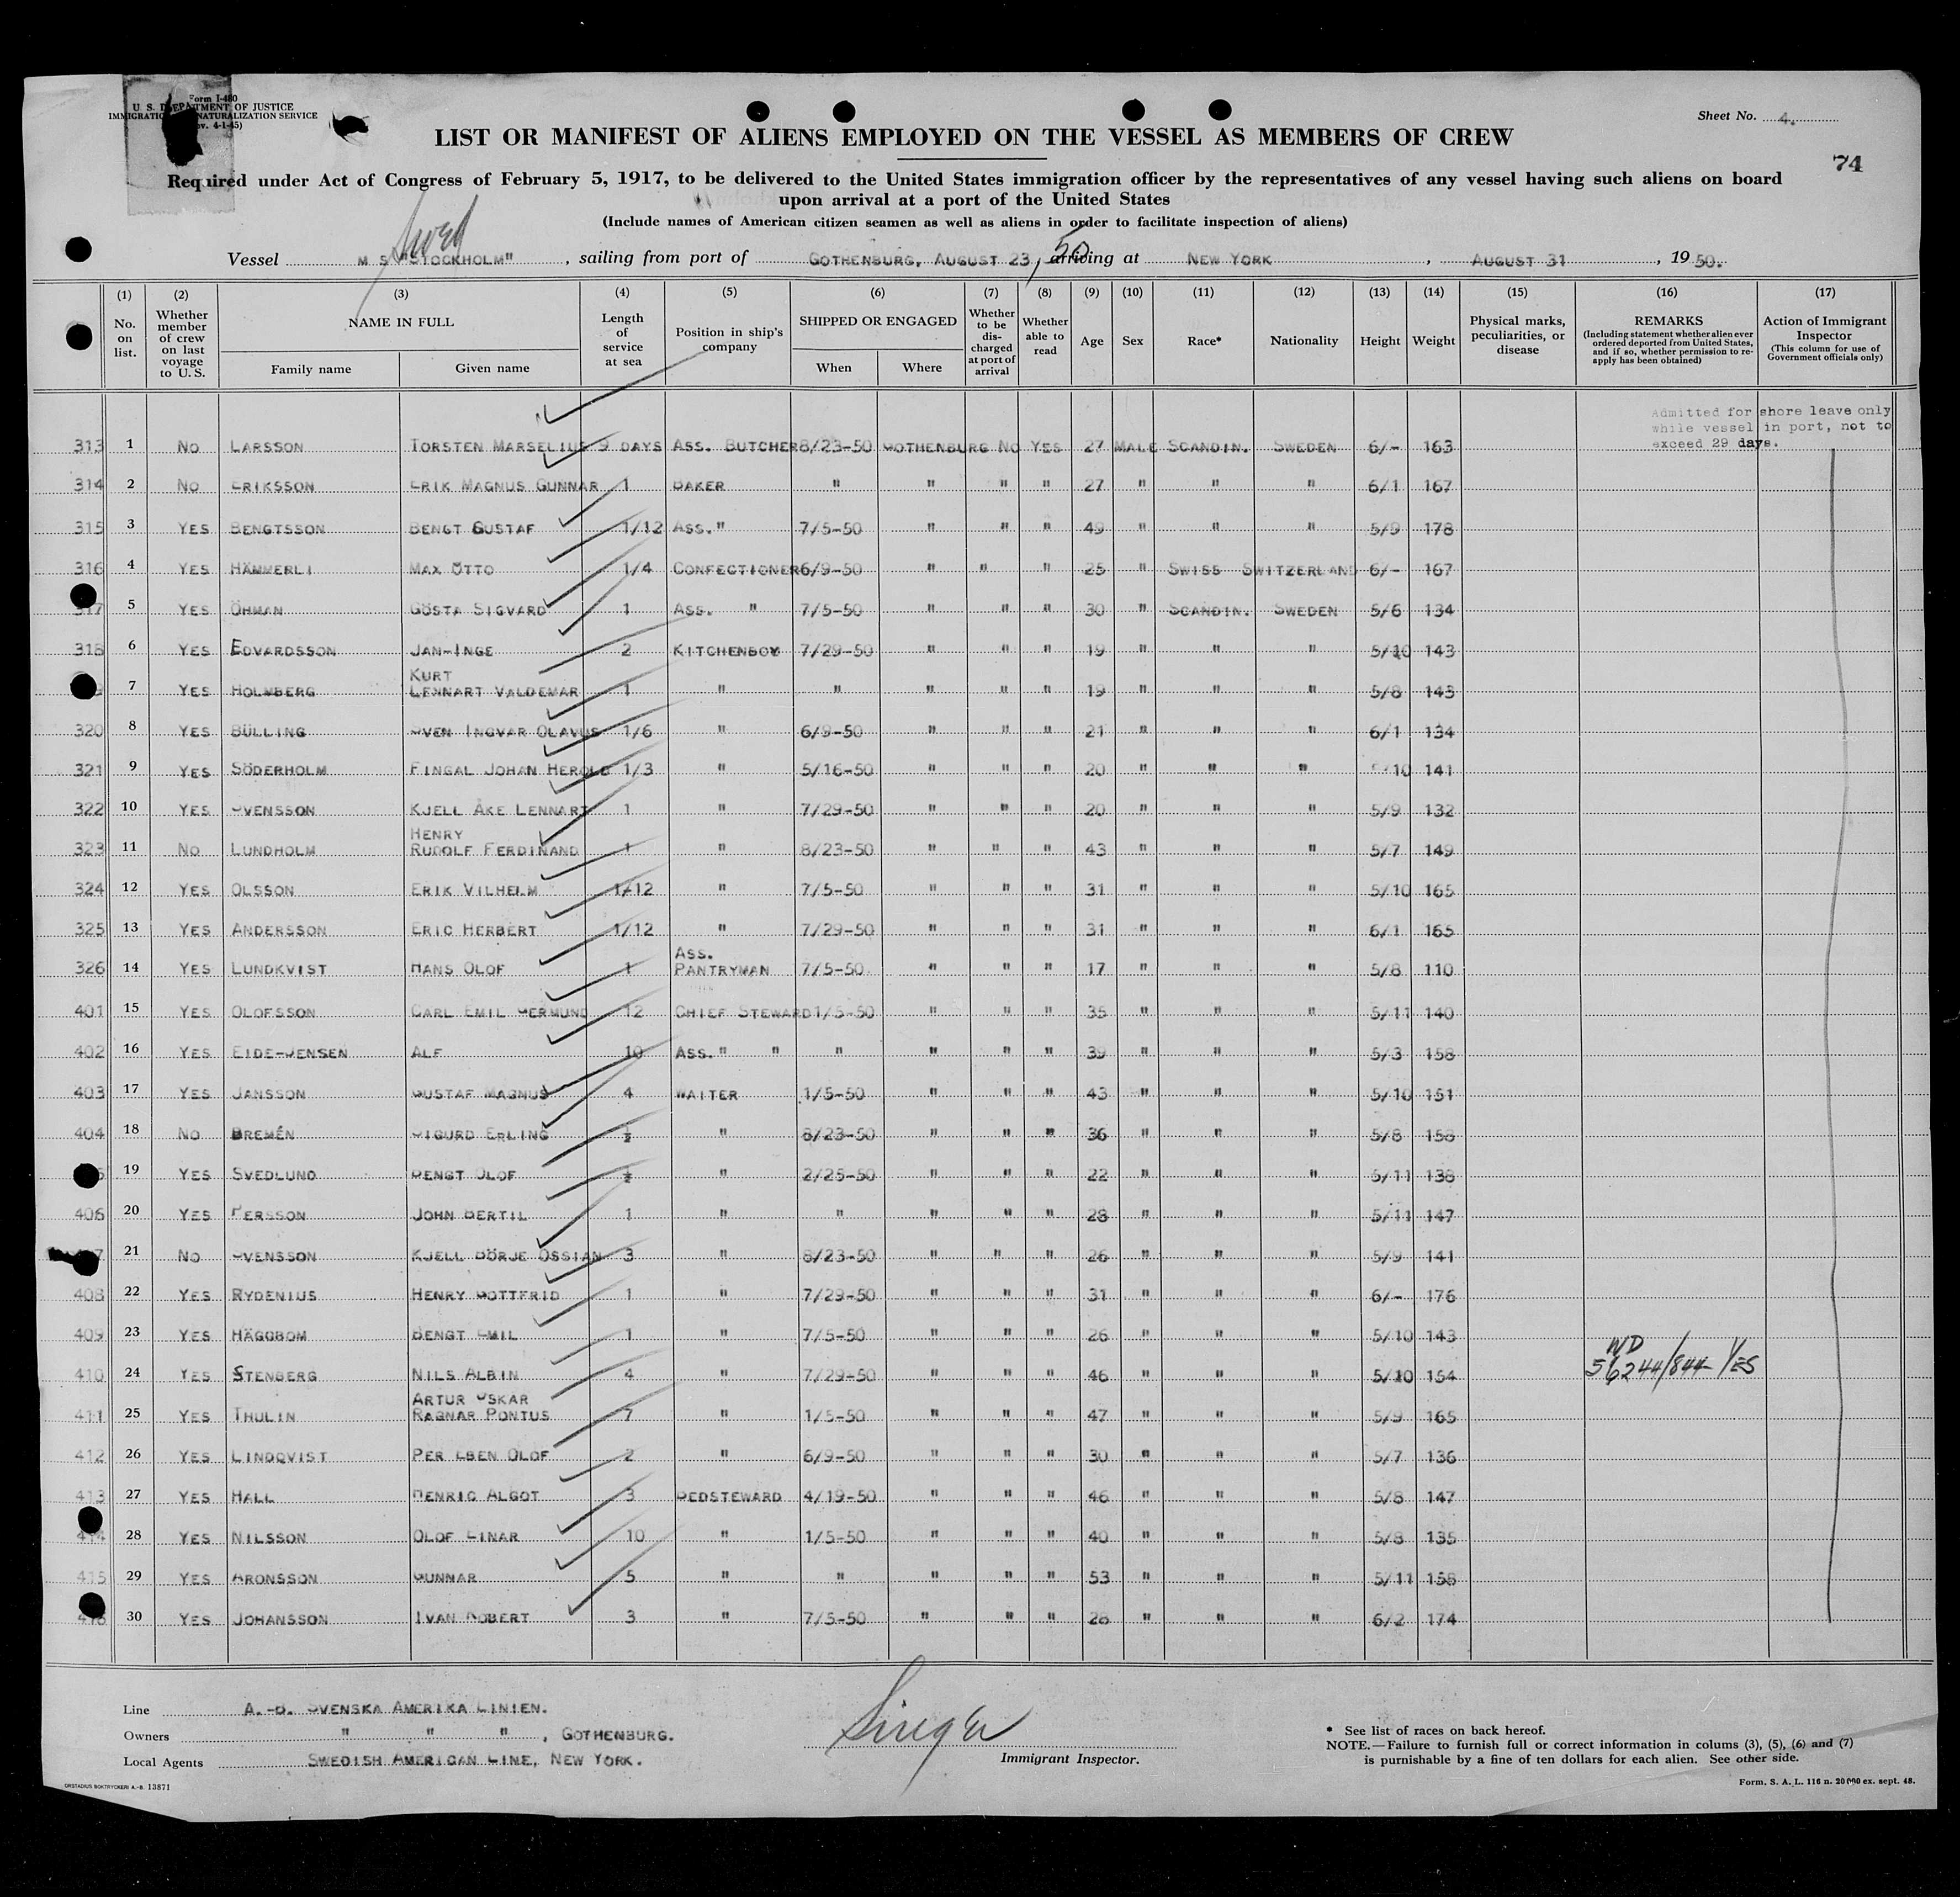 Form I-480
U. S. DEPARTMENT OF JUSTICE
IMMIGRATION NATURALIZATION SERVICE
(Rev. 4-1-45)
Sheet No. 4.
LIST OR MANIFEST OF ALIENS EMPLOYED ON THE VESSEL AS MEMBERS OF CREW
74
Required under Act of Congress of February 5, 1917, to be delivered to the United States immigration officer by the representatives of any vessel having such aliens on board
upon arrival at a port of the United States
(Include names of American citizen seamen as well as aliens in order to facilitate inspection of aliens)
Swed
Vessel M S "STOCKHOLM", sailing from port of GOTHENBURG, AUGUST 23, 50 arriving at NEW YORK, AUGUST 31, 1950.
(1) (2) (3) (4) (5) (6) (7) (8) (9) (10) (11) (12) (13) (14) (15) (16) (17)
No. on list. Whether member of crew on last voyage to U. S. NAME IN FULL Family name Given name Length of service at sea Position in ship's company SHIPPED OR ENGAGED When Where Whether to be discharged at port of arrival Whether able to read Age Sex Race* Nationality Height Weight Physical marks, peculiarities, or disease REMARKS (Including statement whether alien ever ordered deported from United States, and if so, whether permission to reapply has been obtained) Action of Immigrant Inspector (This column for use of Government officials only)
Admitted for shore leave only
while vessel in port, not to
exceed 29 days.
313 1 NO LARSSON TORSTEN MARSELIUS 9 DAYS ASS. BUTCHER 8/23-50 GOTHENBURG NO YES 27 MALE SCANDIN. SWEDEN 6/- 163
314 2 NO ERIKSSON ERIK MAGNUS GUNNAR 1 BAKER " " " " 27 " " " 6/1 167
315 3 YES BENGTSSON BENGT GUSTAF 1/12 ASS. " 7/5-50 " " " 49 " " " 5/9 178
316 4 YES HÄMMERLI MAX OTTO 1/4 CONFECTIONER 6/9-50 " " " 25 " SWISS SWITZERLAND 6/- 167
317 5 YES ÖHMAN GÖSTA SIGVARD 1 ASS. " 7/5-50 " " " 30 " SCANDIN. SWEDEN 5/6 134
318 6 YES EDVARDSSON JAN-INGE 2 KITCHENBOY 7/29-50 " " " 19 " " " 5/10 143
7 YES HOLMBERG KURT LENNART VALDEMAR 1 " " " " " 19 " " " 5/8 143
320 8 YES BÜLLING SVEN INGVAR OLAVUS 1/6 " 6/9-50 " " " 21 " " " 6/1 134
321 9 YES SÖDERHOLM FINGAL JOHAN HEROLD 1/3 " 5/16-50 " " " 20 " " " /10 141
322 10 YES SVENSSON KJELL ÅKE LENNART 1 " 7/29-50 " " " 20 " " " 5/9 132
323 11 NO LUNDHOLM HENRY RUDOLF FERDINAND 1 " 8/23-50 " " " 43 " " " 5/7 149
324 12 YES OLSSON ERIK VILHELM 1/12 " 7/5-50 " " " 31 " " " 5/10 165
325 13 YES ANDERSSON ERIC HERBERT 1/12 " 7/29-50 " " " 31 " " " 6/1 165
326 14 YES LUNDKVIST HANS OLOF 1 ASS. PANTRYMAN 7/5-50 " " " 17 " " " 5/8 110
401 15 YES OLOFSSON CARL EMIL GERMUND 12 CHIEF STEWARD 1/5-50 " " " 35 " " " 5/11 140
402 16 YES EIDE-JENSEN ALF 10 ASS. " " " " " " 39 " " " 5/3 158
403 17 YES JANSSON GUSTAF MAGNUS 4 WAITER 1/5-50 " " " 43 " " " 5/10 151
404 18 NO BREMÉN SIGURD ERLING ½ " 8/23-50 " " " 36 " " " 5/8 158
19 YES SVEDLUND BENGT OLOF ½ " 2/25-50 " " " 22 " " " 5/11 138
406 20 YES PERSSON JOHN BERTIL 1 " " " " " 28 " " " 5/11 147
21 NO SVENSSON KJELL BÖRJE OSSIAN 3 " 8/23-50 " " " 26 " " " 5/9 141
408 22 YES RYDENIUS HENRY GOTTFRID 1 " 7/29-50 " " " 31 " " " 6/- 176
409 23 YES HÄGGBOM BENGT EMIL 1 " 7/5-50 " " " 26 " " " 5/10 143
410 24 YES STENBERG NILS ALBIN 4 " 7/29-50 " " " 46 " " " 5/10 154 ND 56244/844 YES
411 25 YES THULIN ARTUR OSKAR RAGNAR PONTUS 7 " 1/5-50 " " " 47 " " " 5/9 165
412 26 YES LINDQVIST PER EBEN OLOF 2 " 6/9-50 " " " 30 " " " 5/7 136
413 27 YES HALL HENRIC ALGOT 3 BEDSTEWARD 4/19-50 " " " 46 " " " 5/8 147
414 28 YES NILSSON OLOF EINAR 10 " 1/5-50 " " " 40 " " " 5/8 135
415 29 YES ARONSSON GUNNAR 5 " " " " " 53 " " " 5/11 158
416 30 YES JOHANSSON IVAN ROBERT 3 " 7/5-50 " " " 28 " " " 6/2 174
Line A.-B. SVENSKA AMERIKA LINIEN.
Owners " " ", GOTHENBURG.
Local Agents SWEDISH AMERICAN LINE, NEW YORK.
Immigrant Inspector.
* See list of races on back hereof.
NOTE.—Failure to furnish full or correct information in colums (3), (5), (6) and (7)
is purnishable by a fine of ten dollars for each alien. See other side.
ORSTADIUS BOKTRYCKERI A.-B. 13871
Form. S. A. L. 116 n. 20000 ex. sept. 48.